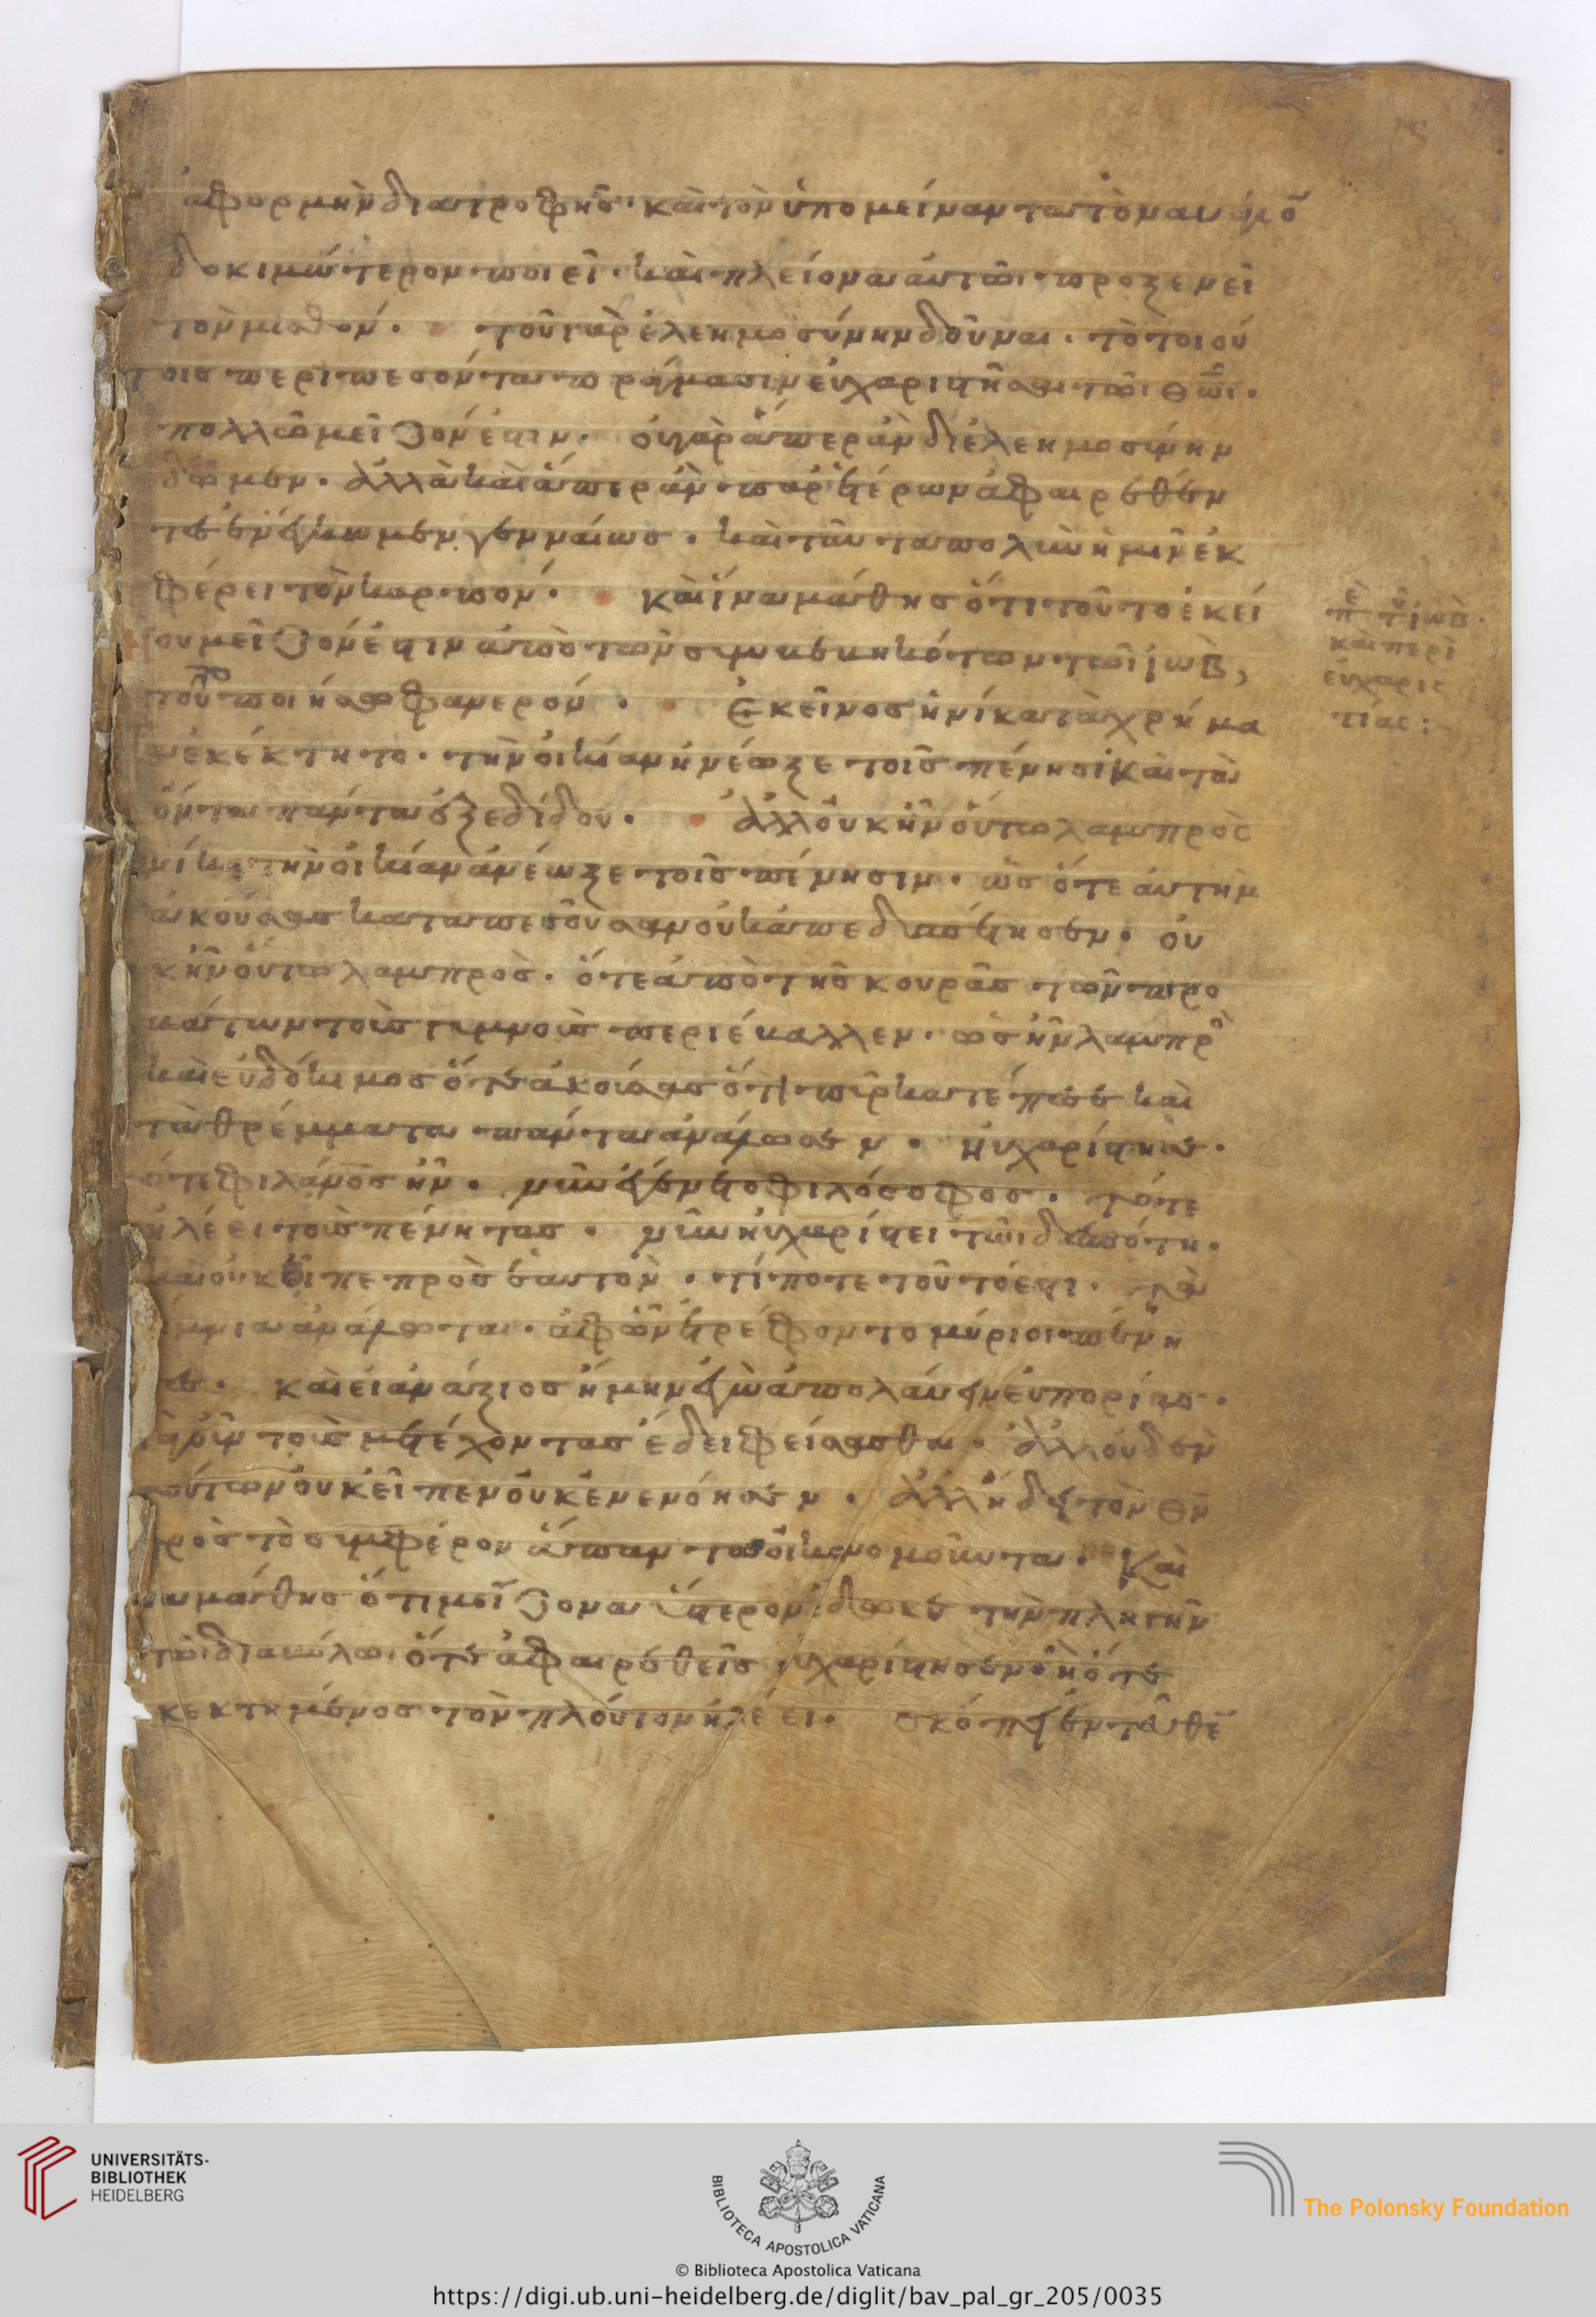 ἀφορμὴν διαστροφῆς· καὶ τὸν ὑπομείναντα τὸν αυ
δοκιμώτερον ποιεῖ· καὶ πλείονα αὐτῶι προξενεῖ
τὸν μισθόν· τοῦ γὰρ ἐλεημοσύνην δοῦναι· τὸ τοιού
τοις περιπεσόντα πράγμασιν εὐχαριστῆσαι τῶι θῶι·
πολλῶ μεῖζόν ἐστιν· οὐ γὰρ ἅπερ ἂν δι ἐλεημοσύνην
δῶμεν· ἀλλὰ καὶ ἅπερ ἂν παρ ἑτέρων ἀφαιρεθέν
τες ἐνέγκωμεν γενναίως· καὶ ταῦτα πολὺν ἡμῖν ἐκ
φέρει τὸν καρπόν· καὶ ἵνα μάθης ὅτι τοῦτο ἐκεί
νου μεῖζόν ἐστιν ἀπὸ τῶν συμβεβηκότων τῶι ἰὼβ,
τοῦτο ποιήσω φανερόν· ἐκεῖνος ἡνίκα τὰ χρήμα
τα ἐκέκτητο· τὴν οἰκίαν ἠνέωξε τοῖς πένησι καὶ τὰ
ὄντα πάντα ἐξεδίδου· ἀλλ οὐκ ἦν οὕτω λαμπρὸς
ἡνίκα τὴν οἰκίαν ἀνέωξε τοῖς πένησιν· ὡς ὅτε αὐτὴν
ἀκούσας καταπεσοῦσαν οὐκ ἀπεδυσπέτησεν· οὐ
κ ἦν οὕτω λαμπρὸς· ὅτε ἀπὸ τῆς κουρᾶς τῶν προ
βάτων τοὺς γυμνοὺς περιέβαλλεν· ὡς ἦν λαμπρὸ
καὶ εὐδόκιμος ὅτε ἀκούσας ὅτι πῦρ κατέπεσε καὶ
τὰ θρέμματα πάντα ἀνάλωσεν· ηὐχαρίστησε·
τότε φιλάνος ἦν· νῦν ἐγένετο φιλόσοφος· τότε
ἠλέει τοὺς πένητας· νῦν ηὐχαρίστει τῶι δεσπότη·
καὶ οὐκ εἶπε πρὸς ἑαυτὸν· τί ποτε τοῦτό ἐστι· τὰ
ποίμνια ἀνάλωται· ἀφ ὧν ἐτρέφοντο μύριοι πένη
τες· καὶ εἰ ἀνάξιος ἤμην ἐγὼ ἀπολαύειν εὐπορίας·
διὰ γοῦν τοὺς μετέχοντας ἔδει φείσασθαι· ἀλλ οὐδὲν
τούτων οὐκ εἶπεν οὐκ ἐνενόησεν· ἀλλ ήδει τὸν θν
πρὸς τὸ συμφέρον ἅπαντα οἰκονομοῦντα· καὶ
ἵνα μάθης ὅτι μείζονα ὕστερον ἔδωκε τὴν πληγὴν
τῶι διαβόλω· ὅτε ἀφαιρεθεὶς ηὐχαρίστησεν ἢ ὅτε
κεκτημένος τὸν πλοῦτον ἠλέει· σκόπει ἐνταῦθα
π τ ἰώβ·
καὶ περὶ
εὐχαρισ
τίας:
UNIVERSITÄTS-
BIBLIOTHEK
HEIDELBERG
BIBLIOTECA APOSTOLICA VATICANA
The Polonsky Foundation
© Biblioteca Apostolica Vaticana
https://digi.ub.uni-heidelberg.de/diglit/bav_pal_gr_205/0035